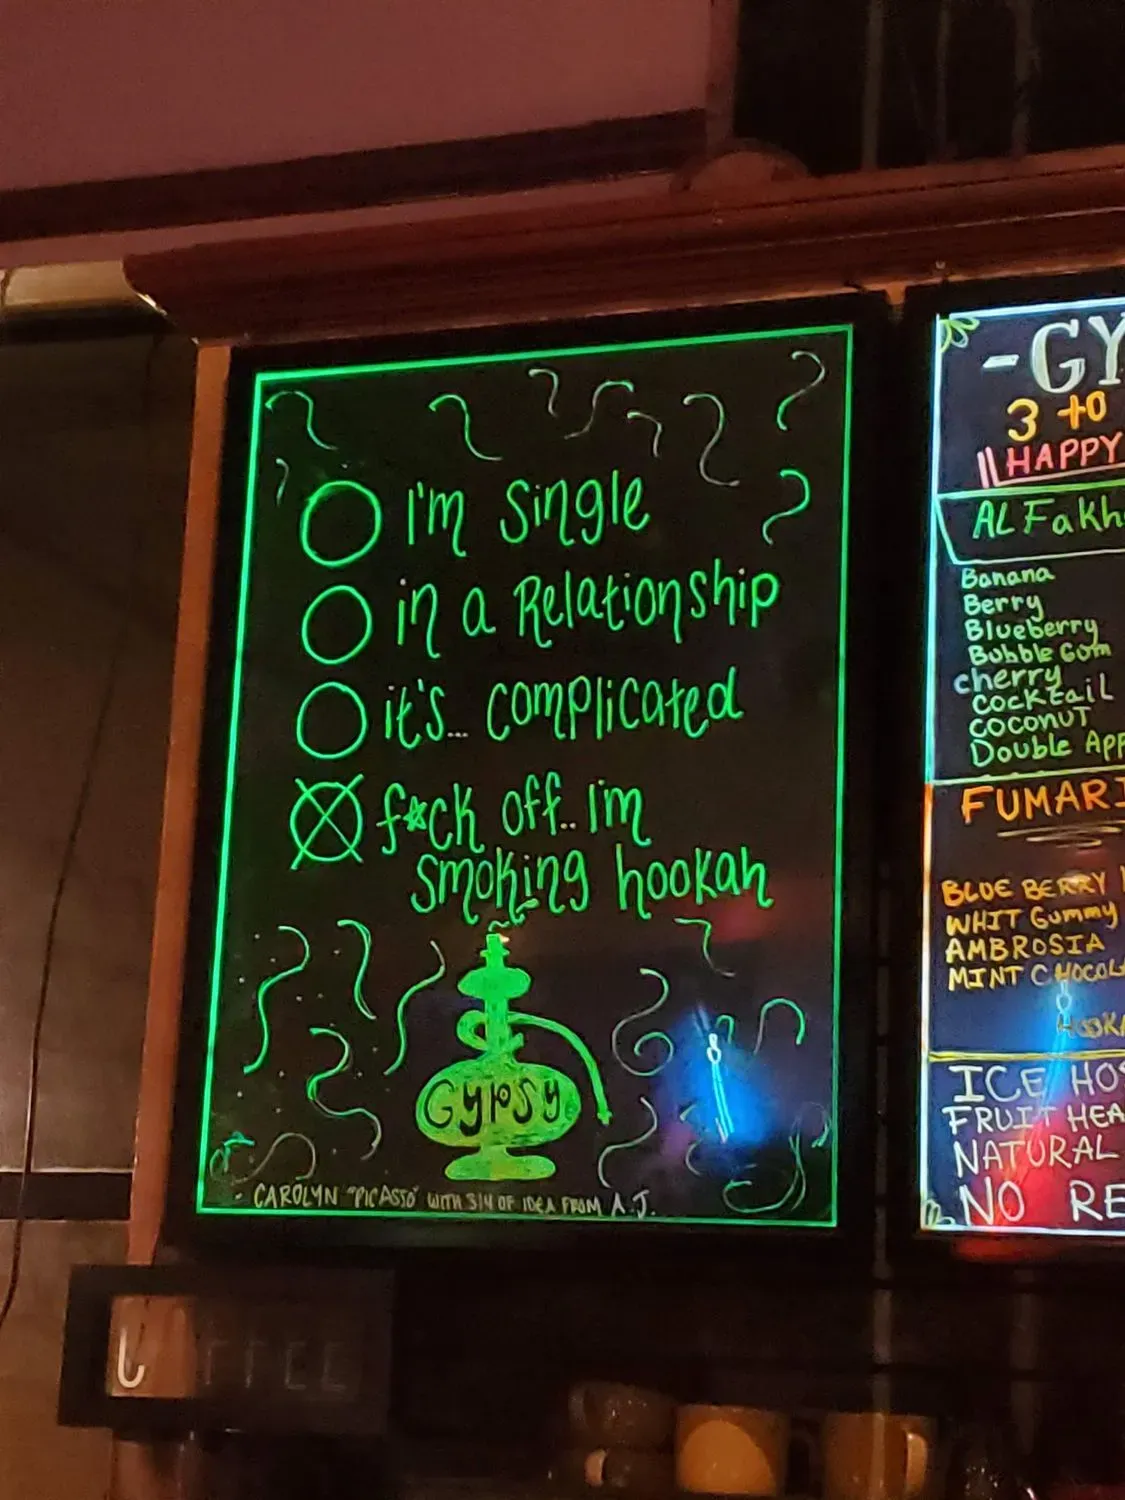 I'm single
in a Relationship
it's... complicated
f☆ck off.. I'm
smoking hookah
Gypsy
- CAROLYN "PICASSO" WITH 3/4 OF IDEA FROM A.J.
-GY
3 to
HAPPY
AL Fakh
Banana
Berry
Blueberry
Bubble Gum
cherry
COCKTAIL
COCONUT
Double App
FUMARI
BLUE BERRY
WHIT Gummy
AMBROSIA
MINT CHOCOL
HOOKA
ICE HO
FRUIT HEA
NATURAL
NO RE